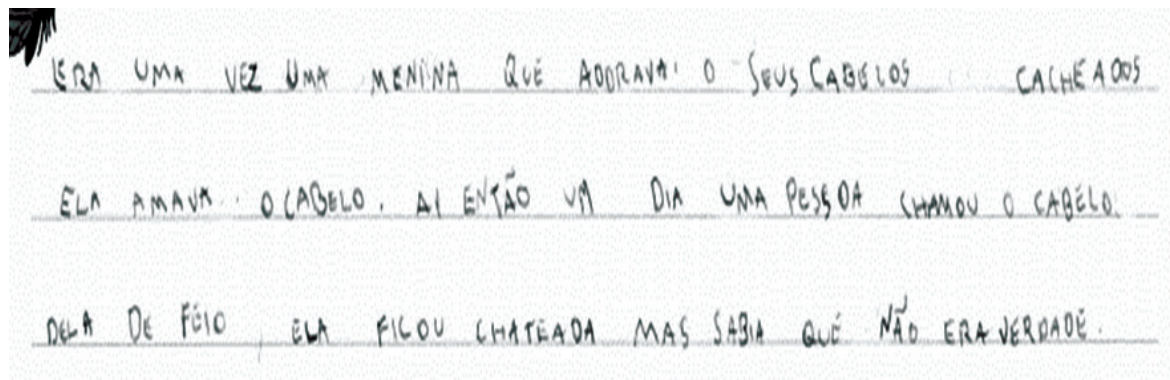 ERA UMA VEZ UMA MENINA QUE ADORAVA O SEUS CABELOS CACHEADOS
ELA AMAVA O CABELO. AI ENTÃO UM DIA UMA PESSOA CHAMOU O CABELO
DELA DE FEIO, ELA FICOU CHATEADA MAS SABIA QUE NÃO ERA VERDADE.